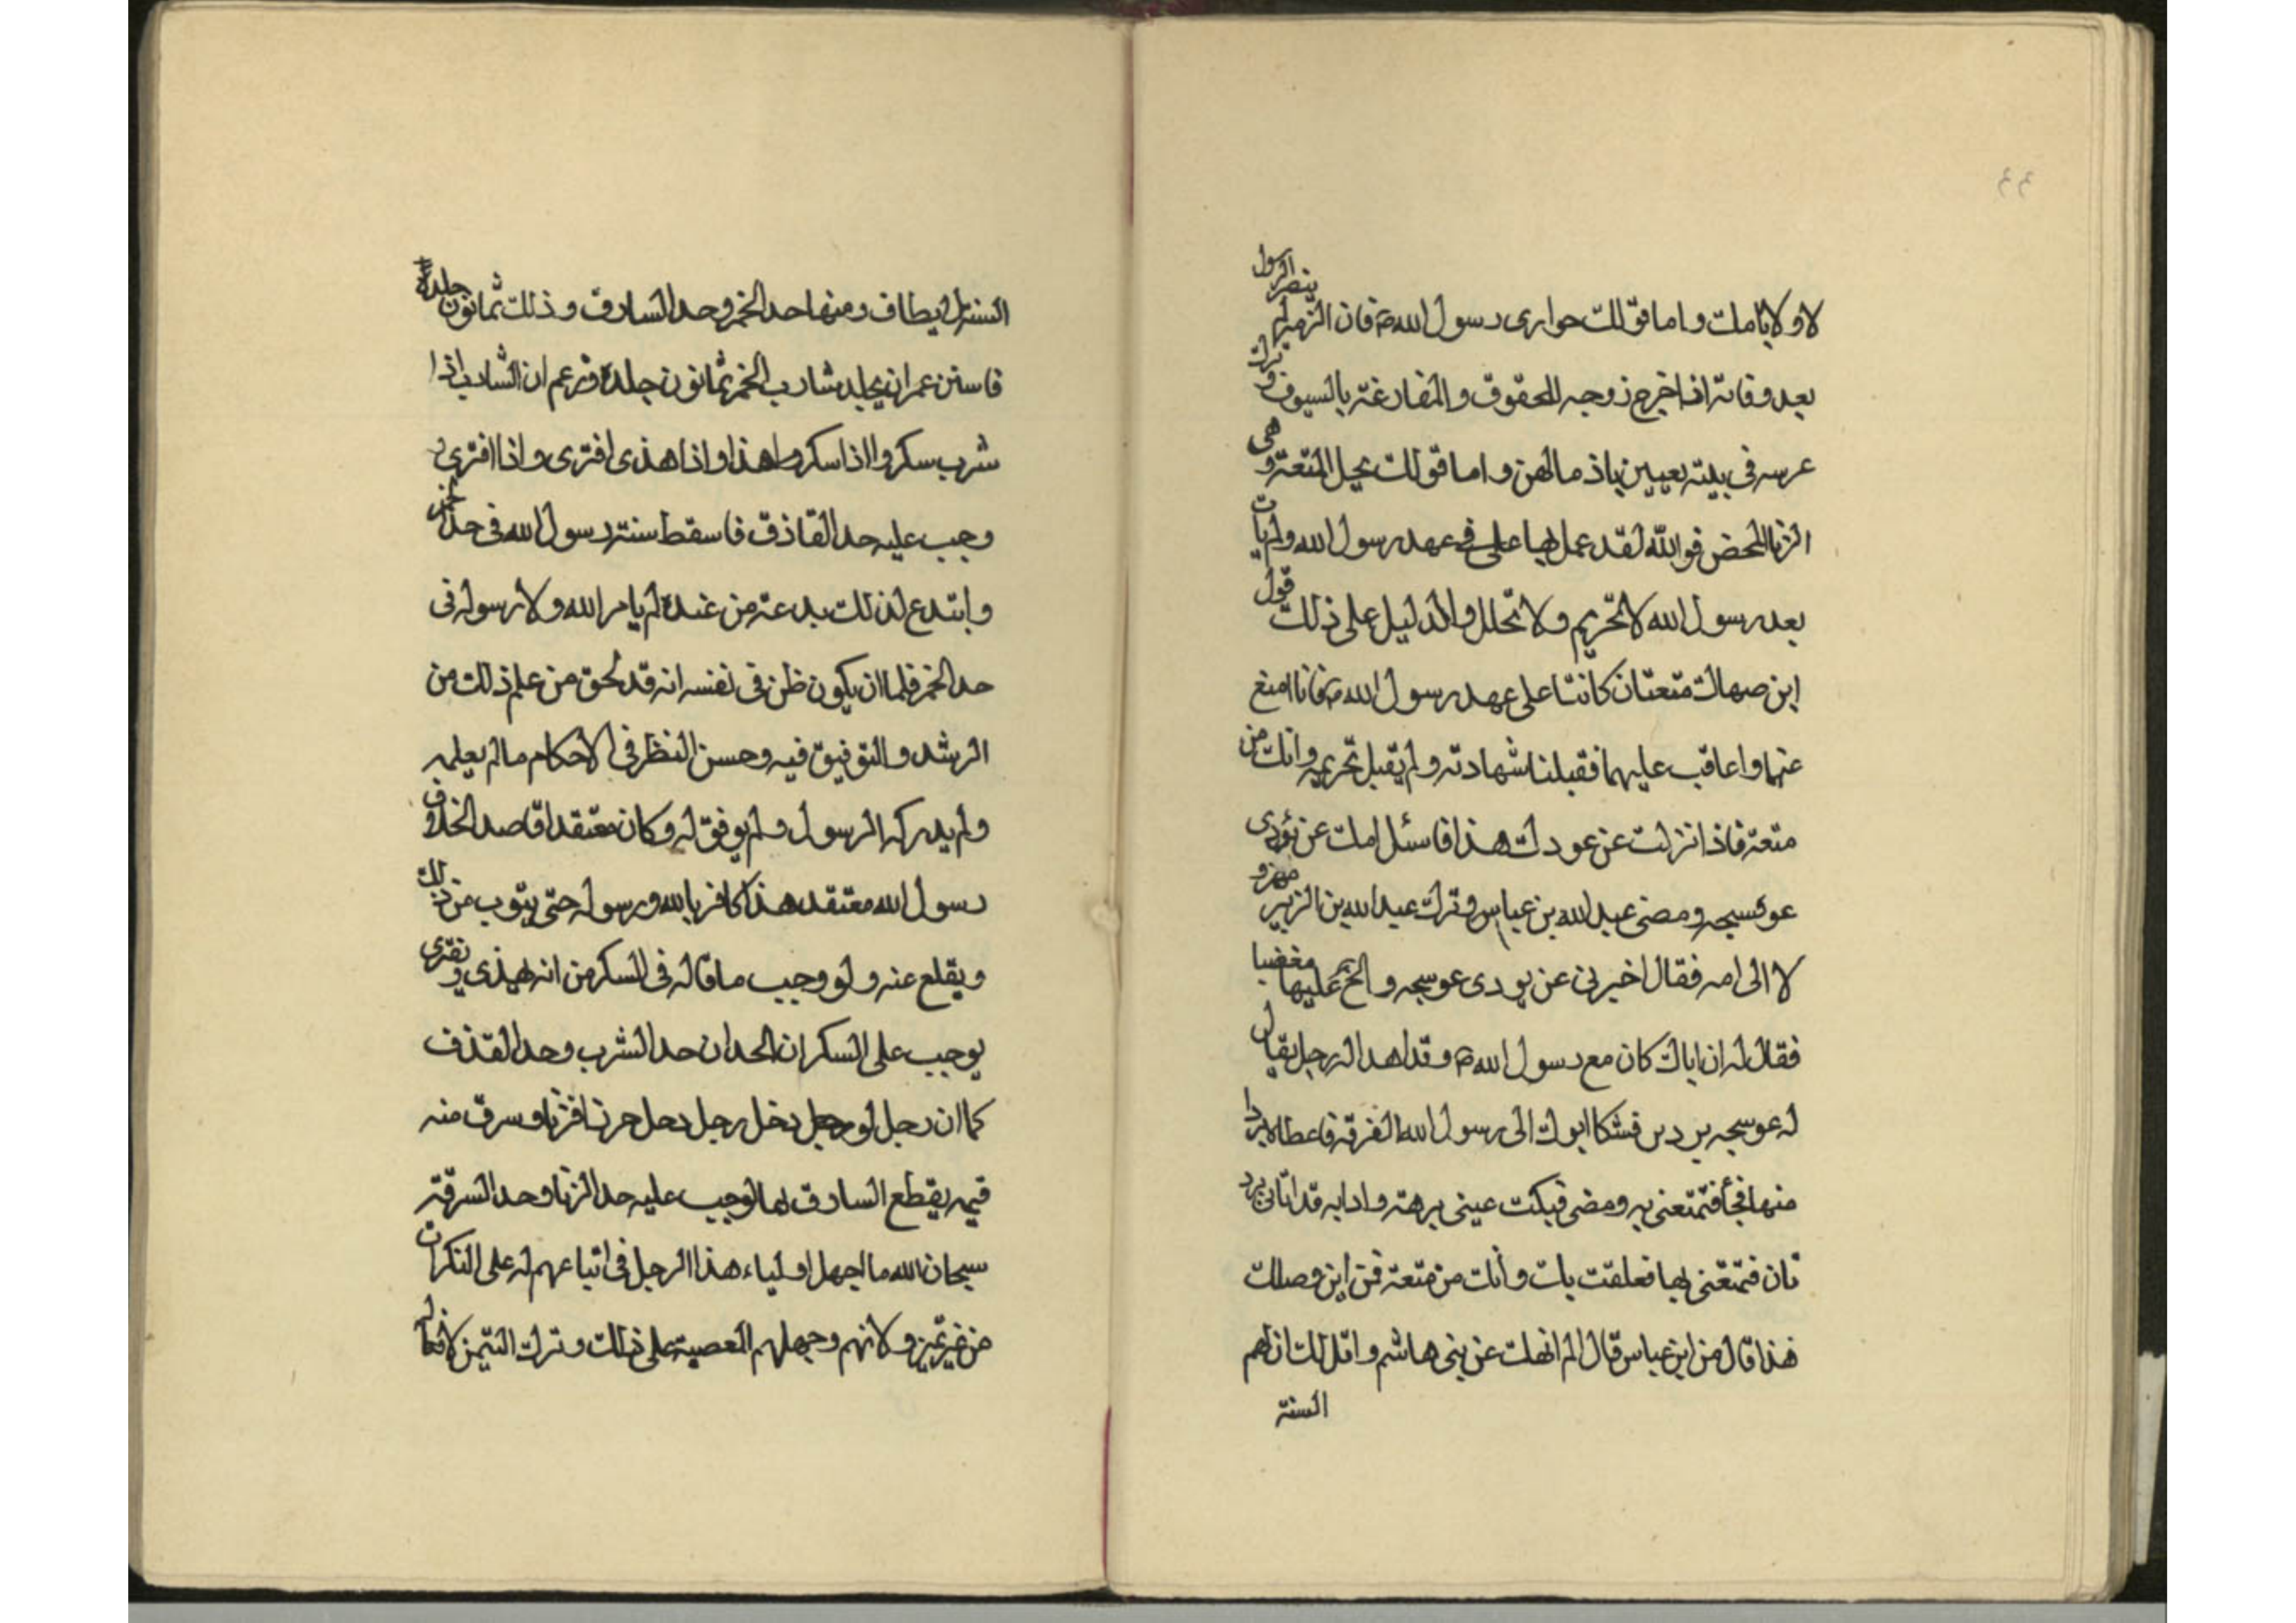 لا ولا باملت واما قولك حوارى رسول الله ص فان الزبير لم ينصر الرسول
بعد وفاته اذ اخرج زوجه للحقوق والمقارعة بالسيوف وترك
عرسه فى بيته واما قولك يحل المتعة وهى
الزنا المحض فوالله لقد عمل بها على فى عهد رسول الله ولم يات
بعد رسول الله لا تحريم ولا تحلل والدليل على ذلك قول
ابن صهاك متعتان كانتا على عهد رسول الله ص فانا امنع
عنهما واعاقب عليهما فقبلنا شهادته ولم يقبل تحريمه وانك من
متعة فاذا نزلت عن عودك هذا فاسئل امك عن بردى
عوسجه ومضى عبد الله بن عباس وترك عبد الله بن الزبير مهزو
لا الى امه فقال اخبرنى عن بردى عوسجه والح عليها مغضبا
فقال له ان اباك كان مع رسول الله ص وقد اهدا له رجل يقال
له عوسجه بردين فشكا ابوك الى رسول الله الغرقه فاعطاه بردا
منها فتمتعنى به ومضى فمكث عينى برهة واذا به قد اتانى ببرد
ثان فتمتعنى بها فعلقت بك وانك من متعة فمن اين وصلك
هذا قال من ابن عباس قال الم انهك عن بنى هاشم واقل لك ان لهم
السنة
السنة لا يطاف ومنها حد الخمر وحد السارق وذلك ثمانون جلدة
فاستن عمر ان يجلد شارب الخمر ثمانون جلدة وزعم ان الشارب اذا
شرب سكر واذا سكر هذا واذا هذى افترى واذا افترى
وجب عليه حد القاذف فاسقط سنة رسول الله فى حد الخمر
وابتدع لذلك بدعة من عنده لم يامر الله ولا رسوله فى
حد الخمر فلما ان يكون ظن فى نفسه انه قد لحق من علم ذلك من
الرشد والتوفيق فيه وحسن النظر فى الاحكام ما لم يعلمه
ولم يدركه الرسول ولم يوفق له وكان معتقدا قاصد الخلاف
رسول الله معتقد هذا كافر بالله ورسوله حتى يتوب من ذلك
ويقلع عنه ولو وجب ما قاله فى السكر من انه يهذى ويفترى
يوجب على السكران الحدان حد الشرب وحد القذف
كما ان رجل لو دخل رجل فزنا وسرق منه
يقطع السارق لما لوجب عليه حد الزنا وحد السرقة
سبحان الله ما اجهل اولياء هذا الرجل فى اتباعهم له على النكرات
من غير تميز ولانهم وجهلهم العصبية على ذلك وترك التيمز لافعاله